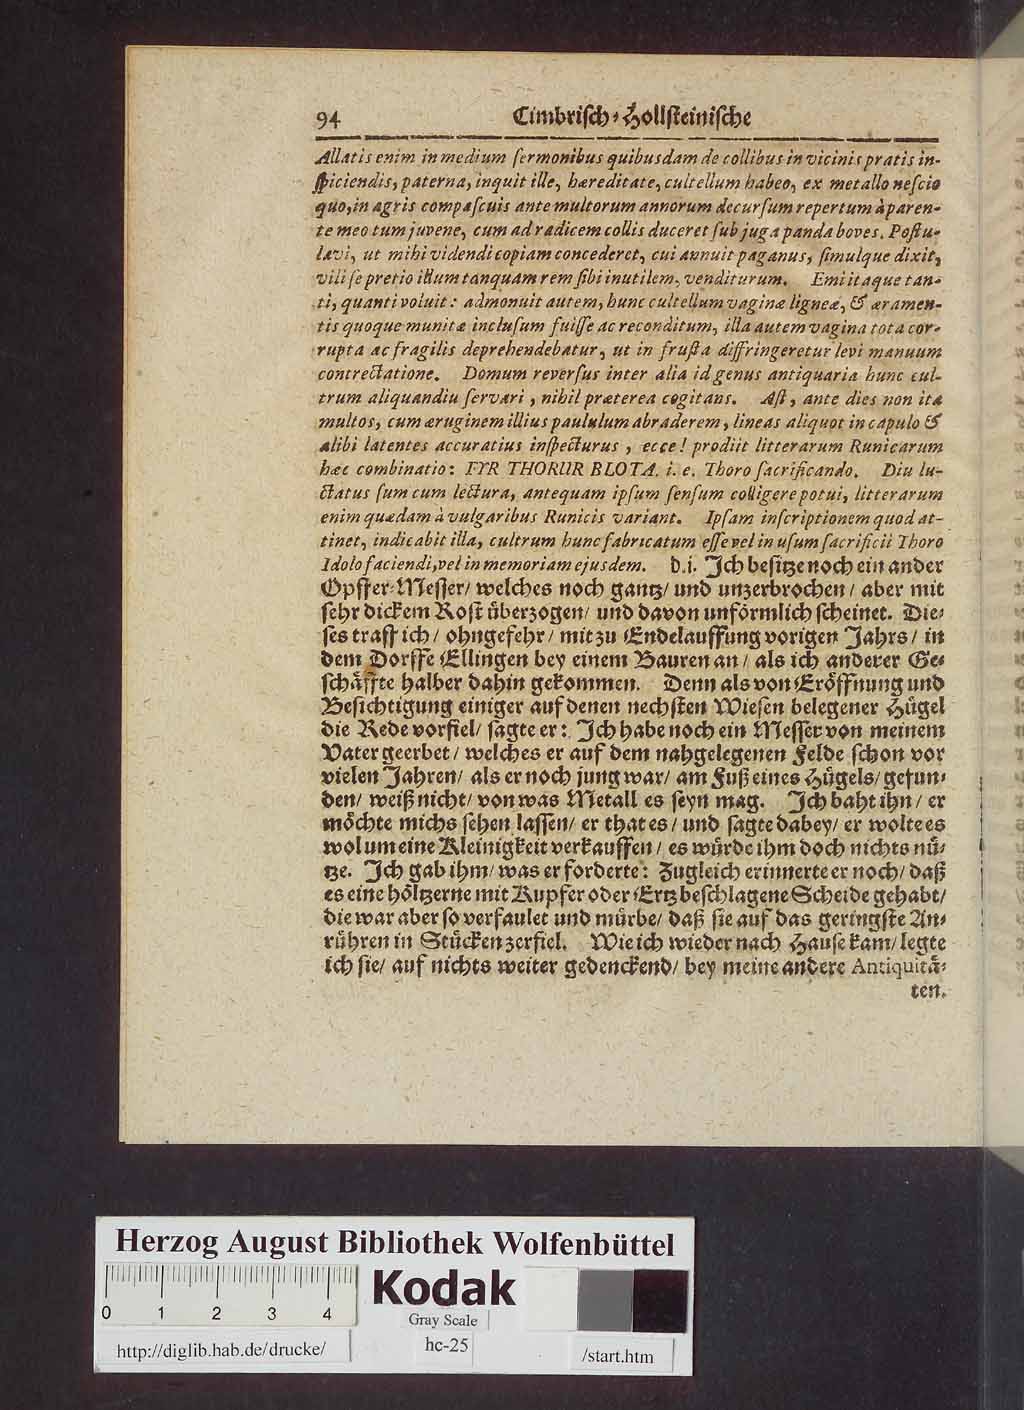 94 Cimbrisch-Hollsteinische
Allatis enim in medium ſermonibus quibusdam de collibus in vicinis pratis in-
ſpiciendis, paterna, inquit ille, hæreditate, cultellum habeo, ex metallo neſcio
quo, in agris compaſcuis ante multorum annorum decurſum repertum à paren-
te meo tum juvene, cum ad radicem collis duceret ſub juga panda boves. Poſtu-
lavi, ut mihi videndi copiam concederet, cui annuit paganus, ſimulque dixit,
vili ſe pretio illum tanquam rem ſibi inutilem, venditurum. Emi itaque tan-
ti, quanti voluit: admonuit autem, hunc cultellum vaginæ ligneæ, & æramen-
tis quoque munitæ incluſum fuiſſe ac reconditum, illa autem vagina tota cor-
rupta ac fragilis deprehendebatur, ut in fruſta diffringeretur levi manuum
contrectatione. Domum reverſus inter alia id genus antiquaria hunc cul-
trum aliquandiu ſervari, nihil præterea cogitans. Aſt, ante dies non ita
multos, cum æruginem illius paululum abraderem, lineas aliquot in capulo &
alibi latentes accuratius inſpecturus, ecce! prodiit litterarum Runicarum
hæc combinatio: FYR THORUR BLOTA. i. e. Thoro ſacrificando. Diu lu-
ctatus ſum cum lectura, antequam ipſum ſenſum colligere potui, litterarum
enim quædam à vulgaribus Runicis variant. Ipſam inſcriptionem quod at-
tinet, indicabit illa, cultrum hunc fabricatum eſſe vel in uſum ſacrificii Thoro
Idolo faciendi, vel in memoriam ejusdem. d.i. Ich beſitze noch ein ander
Opffer-Meſſer/ welches noch gantz/ und unzerbrochen/ aber mit
ſehr dickem Roſt überzogen/ und davon unförmlich ſcheinet. Die-
ſes traff ich/ ohngefehr/ mit zu Endelauffung vorigen Jahrs/ in
dem Dorffe Ellingen bey einem Bauren an/ als ich anderer Ge-
ſchäffte halber dahin gekommen. Denn als von Eröffnung und
Beſichtigung einiger auf denen nechſten Wieſen belegener Hügel
die Rede vorfiel/ ſagte er: Ich habe noch ein Meſſer von meinem
Vater geerbet/ welches er auf dem nahgelegenen Felde ſchon vor
vielen Jahren/ als er noch jung war/ am Fuß eines Hügels/ gefun-
den/ weiß nicht/ von was Metall es ſeyn mag. Ich baht ihn/ er
möchte michs ſehen laſſen/ er that es/ und ſagte dabey/ er wolte es
wol um eine Kleinigkeit verkauffen/ es würde ihm doch nichts nü-
tze. Ich gab ihm/ was er forderte: Zugleich erinnerte er noch/ daß
es eine höltzerne mit Kupfer oder Ertz beſchlagene Scheide gehabt/
die war aber ſo verfaulet und mürbe/ daß ſie auf das geringſte An-
rühren in Stücken zerfiel. Wie ich wieder nach Hauſe kam/ legte
ich ſie/ auf nichts weiter gedenckend/ bey meine andere Antiquitä-
ten.
Herzog August Bibliothek Wolfenbüttel
0 1 2 3 4
Kodak
Gray Scale
http://diglib.hab.de/drucke/ hc-25 /start.htm